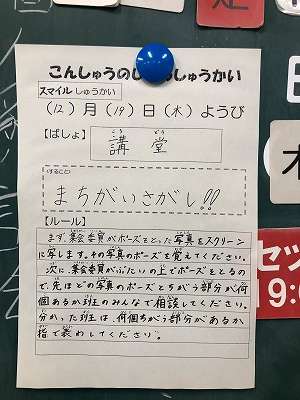 こんしゅうの しゅうかい
スマイルしゅうかい
(12)月(19)日(木)ようび
【ばしょ】
こう どう
講堂
すること
まちがいさがし!!
【ルール】
まず、集会委員がポーズをとった写真をスクリーン
に写します。その写真のポーズを覚えてください。
次に、集会委員がぶたいの上でポーズをとるの
で、先ほどの写真のポーズとちがう部分が何
個あるか班のみんなで相談してください。
分かった班は、何個ちがう部分があるか
指で表わしてください。
セッ
9:0